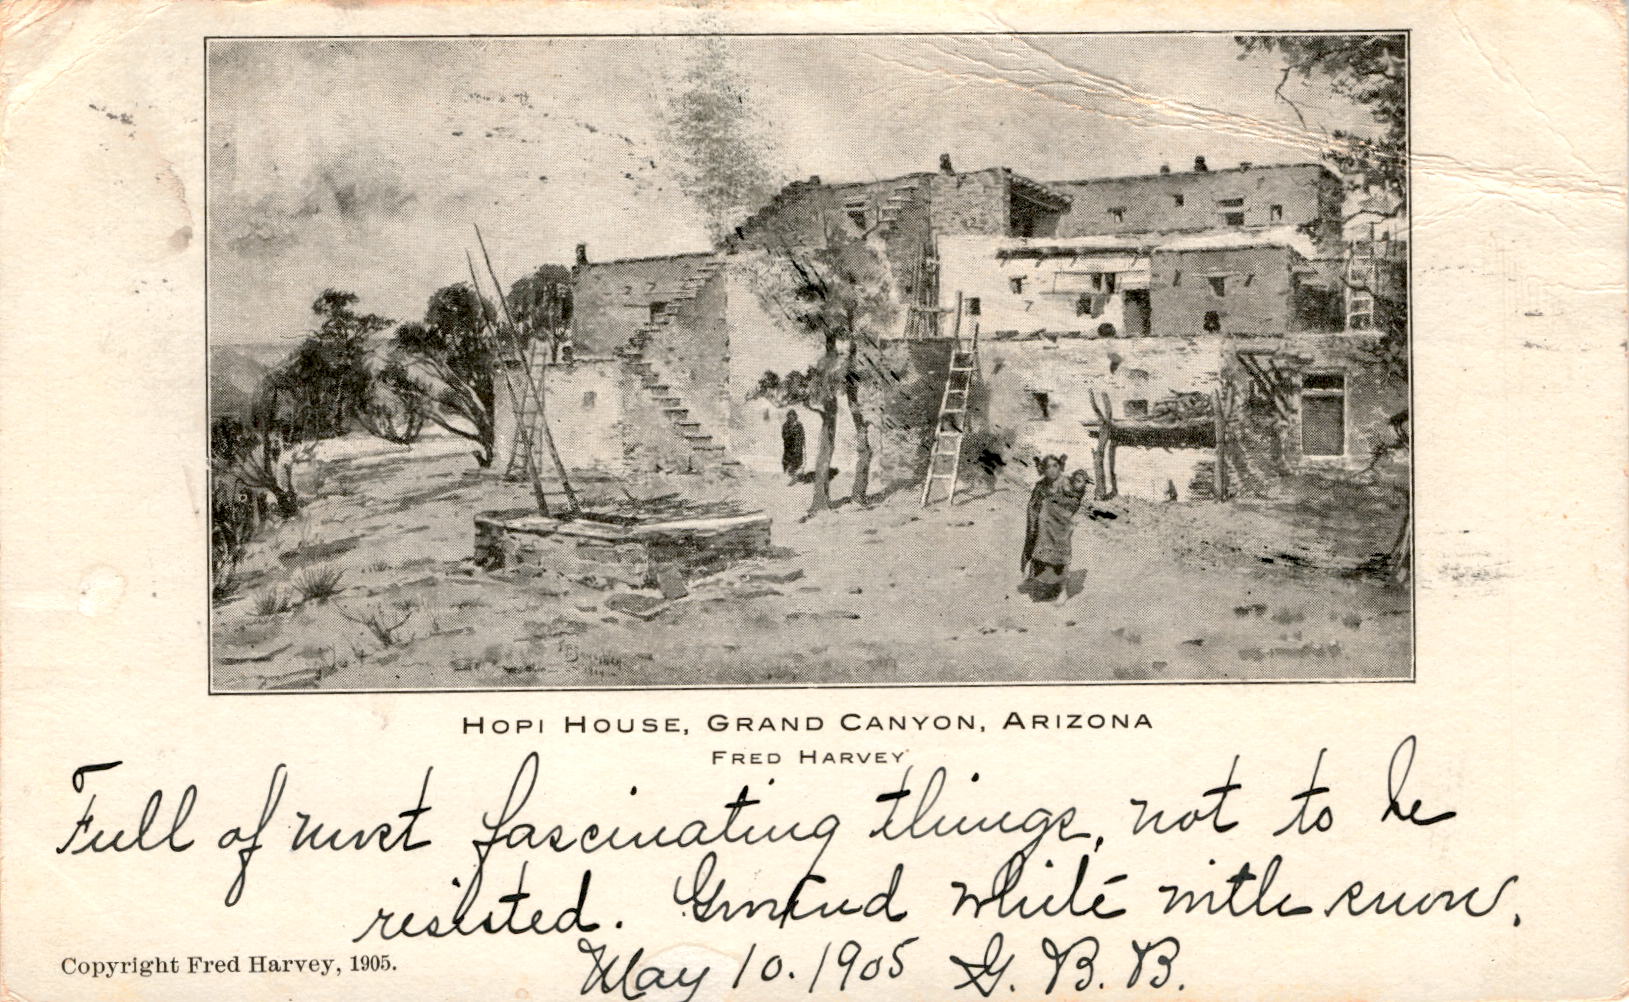 HOPI HOUSE, GRAND CANYON, ARIZONA
FRED HARVEY
Full of most fascinating things, not to be
resisted. Ground white with snow.
Copyright Fred Harvey, 1905.
May 10. 1905 G. B. B.